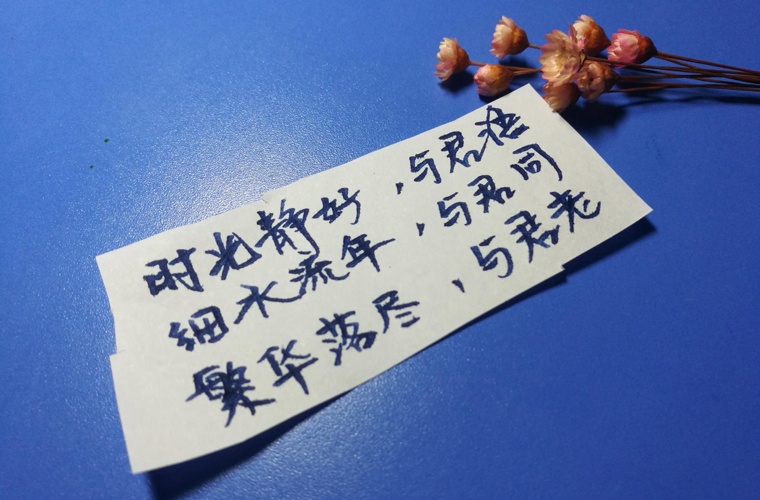 时光静好,与君语
细水流年,与君同
繁华落尽,与君老